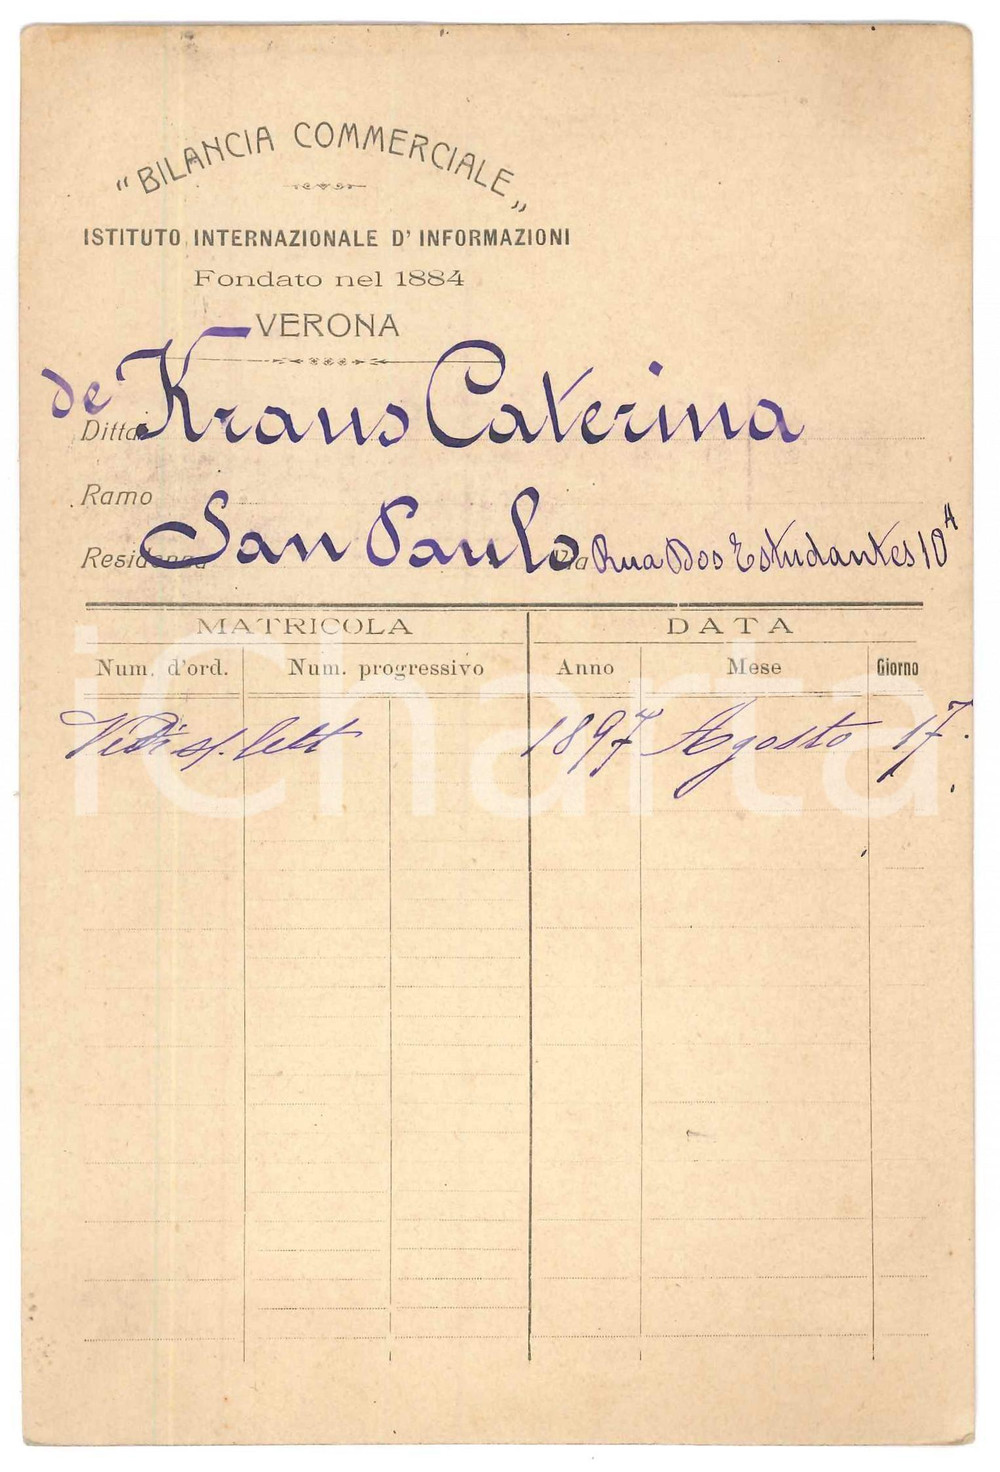 "BILANCIA COMMERCIALE"
ISTITUTO INTERNAZIONALE D'INFORMAZIONI
Fondato nel 1884
VERONA
de
Ditta Kraus Caterina
Ramo
Residenza San Paulo Via Rua Dos Estudantes 10A
MATRICOLA DATA
Num. d'ord. Num. progressivo Anno Mese Giorno
Vedi s/. lett 1897 Agosto 17.
iCharta